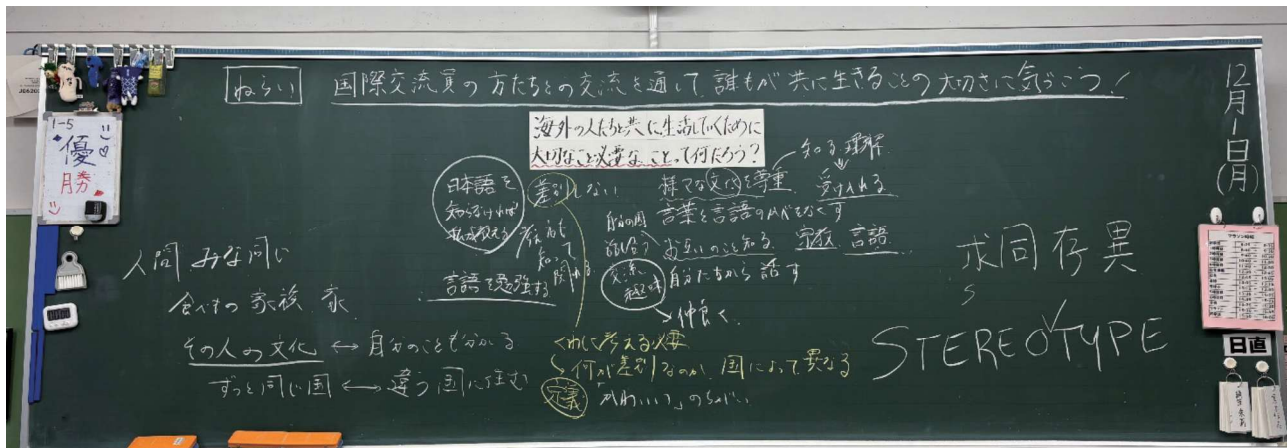 ねらい 国際交流員の方たちとの交流を通して、誰もが共に生きることの大切さに気づこう!
12月1日(月)
1-5
優勝
海外の人たちと共に生活していくために
大切なこと必要なことって何だろう?
知る 理解
日本語を
知らなければ
私が教える
差別しない
様々な文化を尊重
受け入れる
言葉と言語のかべをなくす
自分の国
話し合う
お互いのこと知る
宗教 言語
交流、趣味
自分たちから話す
仲良く
言語を勉強する
人間みな同じ
食べもの 家族 家
その人の文化 ↔ 自分のことも分かる
ずっと同じ国 ↔ 違う国に住む
考える必要
何が差別なのか、国によって異なる
定義
「かわいい」のちがい
求同存異
STEREOTYPE
日直